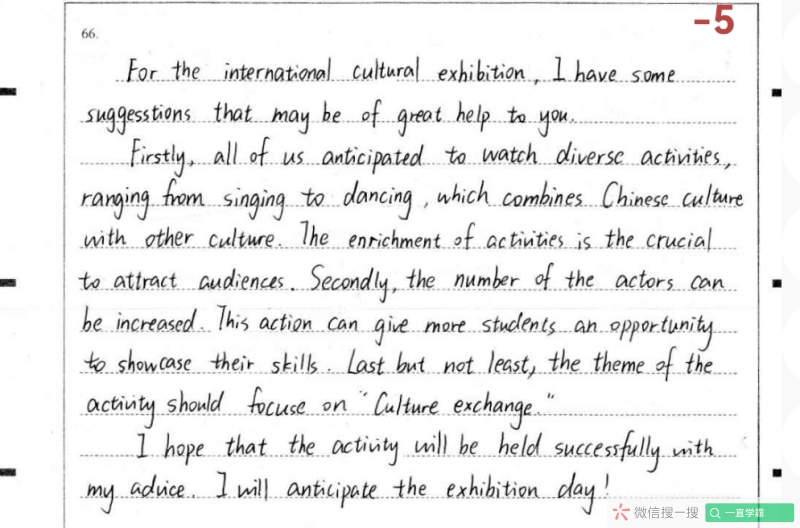 -5
66.
For the international cultural exhibition, I have some
suggesstions that may be of great help to you.
Firstly, all of us anticipated to watch diverse activities,
ranging from singing to dancing, which combines Chinese culture
with other culture. The enrichment of activities is the crucial
to attract audiences. Secondly, the number of the actors can
be increased. This action can give more students an opportunity
to showcase their skills. Last but not least, the theme of the
activity should focuse on "Culture exchange."
I hope that the activity will be held successfully with
my advice. I will anticipate the exhibition day!
微信搜一搜 一直学霸